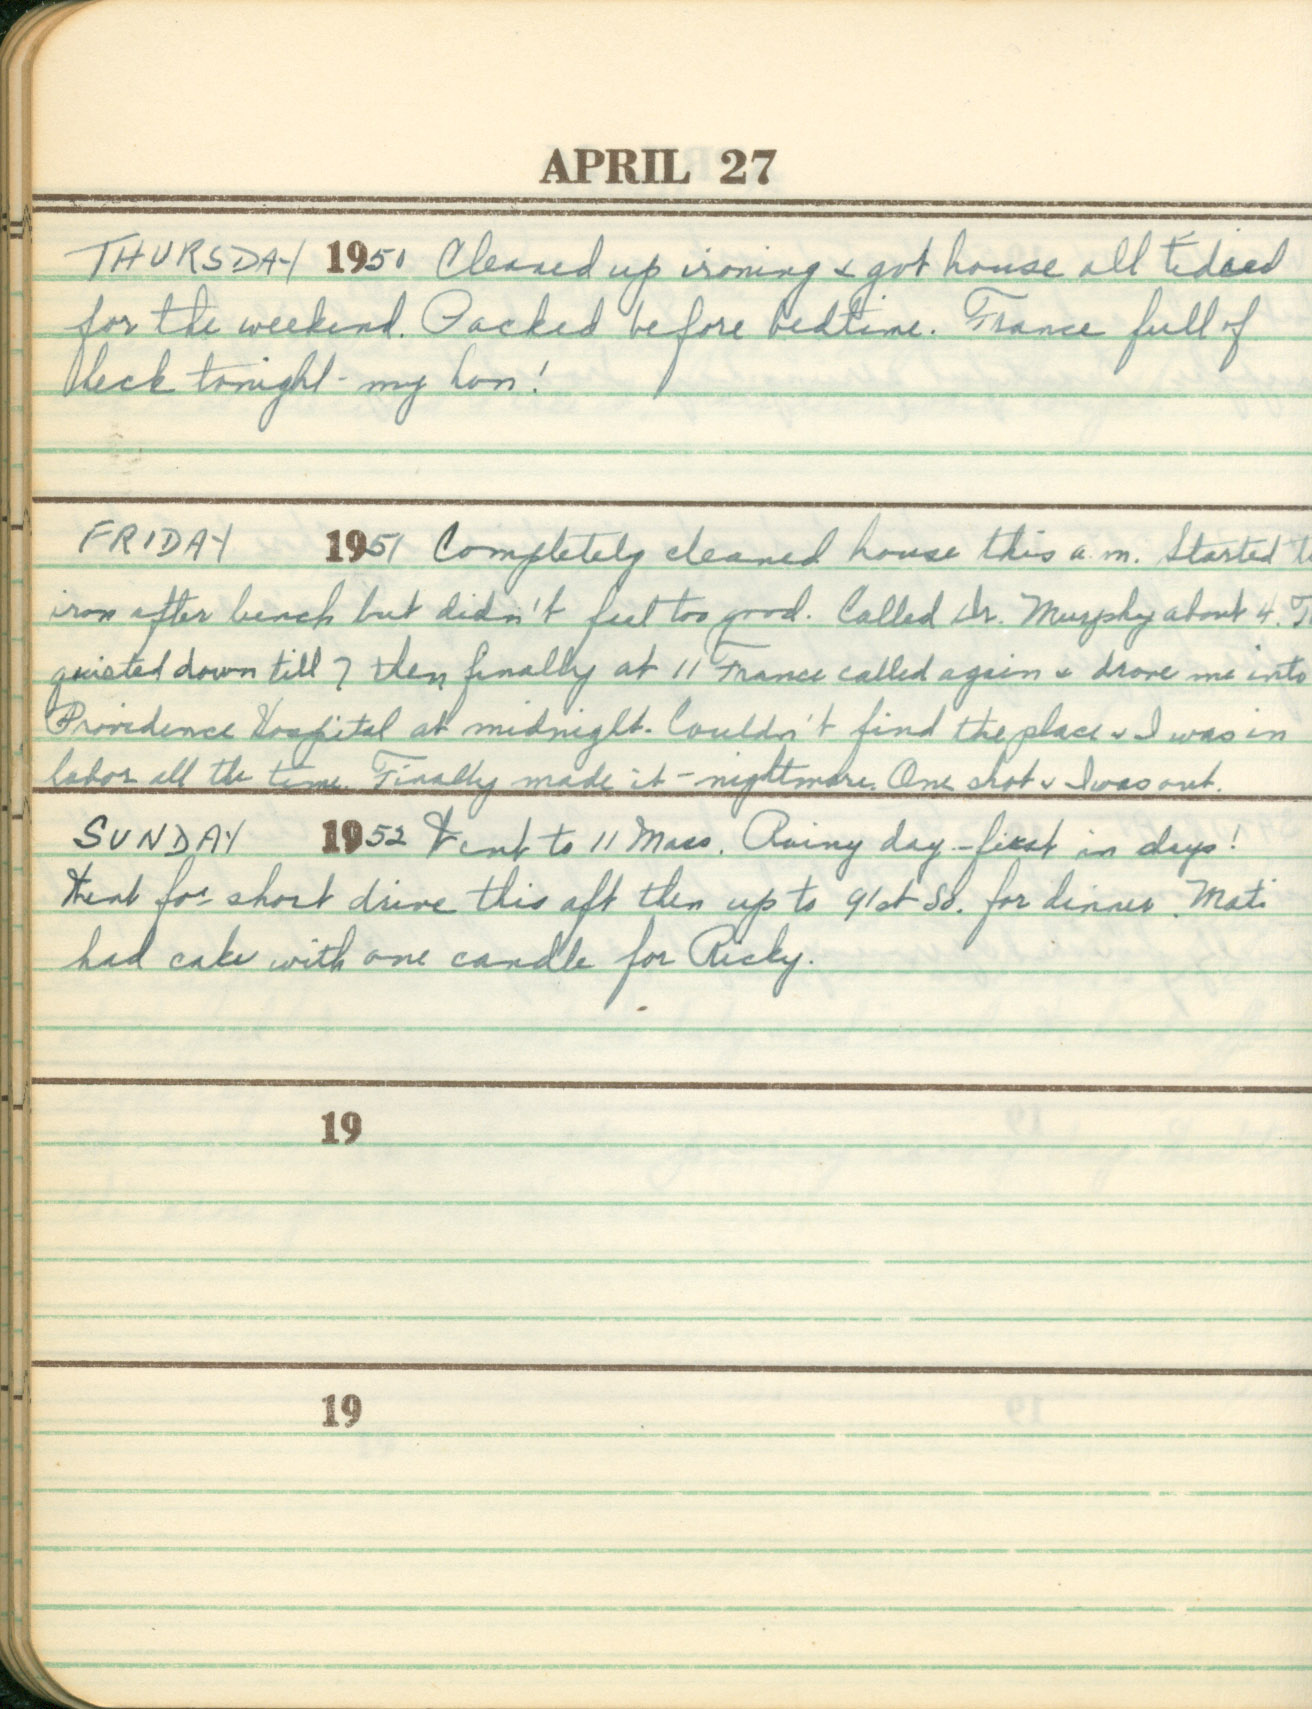 APRIL 27
THURSDAY 1950 Cleaned up ironing & got house all tidied
for the weekend. Packed before bedtime. France full of
heck tonight - my hon!
FRIDAY 1951 Completely cleaned house this a.m. Started to
iron after lunch but didn't feel too good. Called Dr. Murphy about 4.
quieted down till 7 then finally at 11 France called again & drove me into
Providence Hospital at midnight. Couldn't find the place & I was in
labor all the time. Finally made it - nightmare. One shot & I was out.
SUNDAY 1952 Went to 11 Mass. Rainy day - first in days!
Went for short drive this aft then up to 91st St. for dinner. Mati
had cake with one candle for Ricky.
19
19